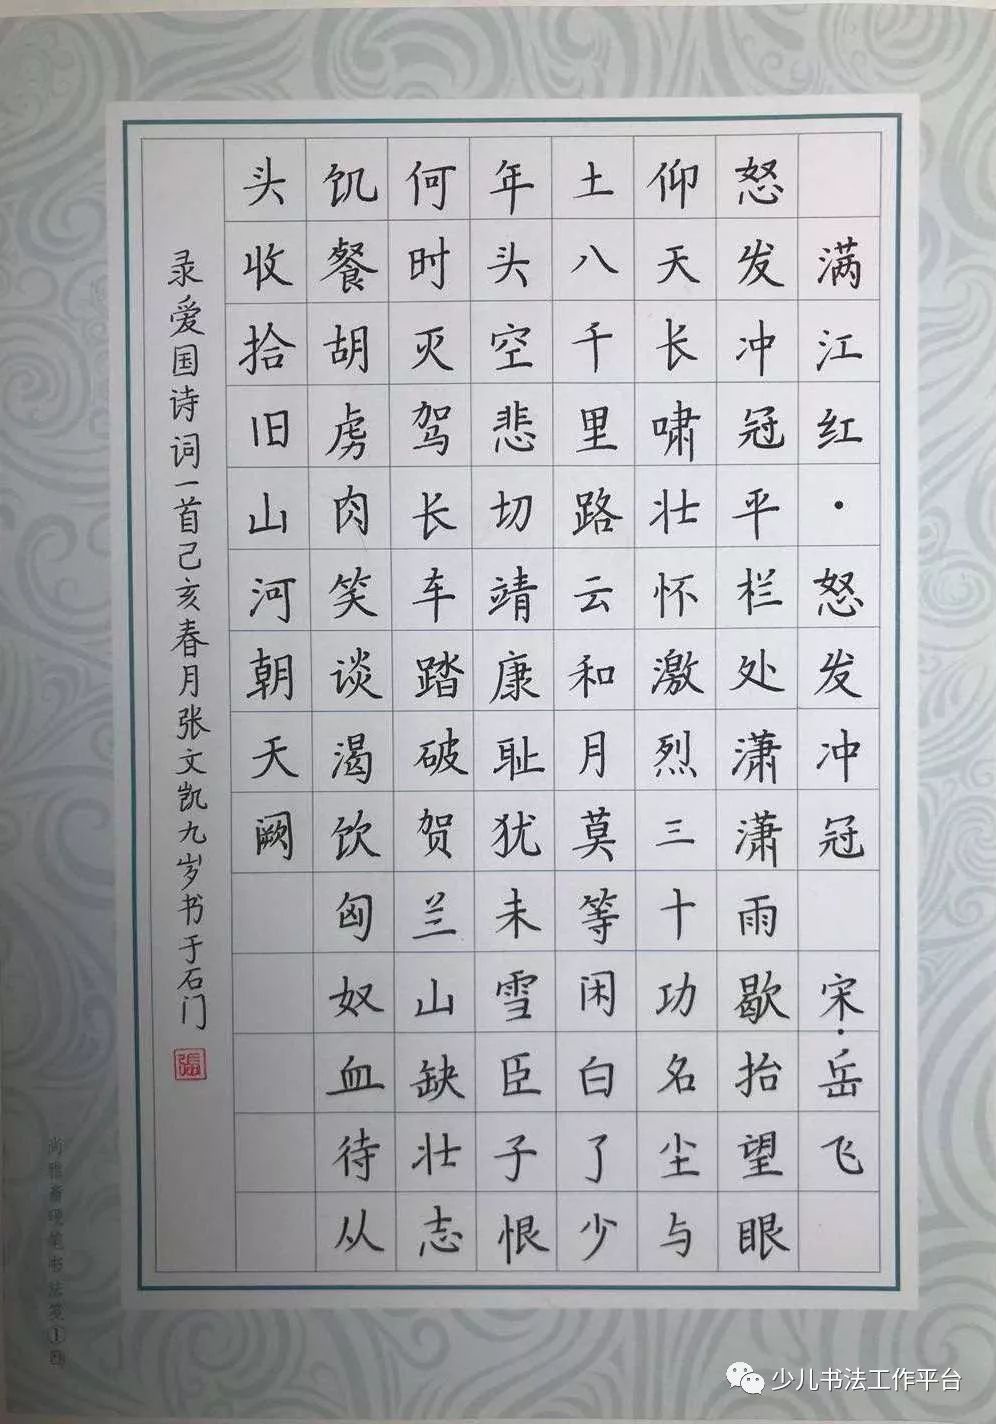 满江红·怒发冲冠 宋·岳飞
怒发冲冠平栏处潇潇雨歇抬望眼
仰天长啸壮怀激烈三十功名尘与
土八千里路云和月莫等闲白了少
年头空悲切靖康耻犹未雪臣子恨
何时灭驾长车踏破贺兰山缺壮志
饥餐胡虏肉笑谈渴饮匈奴血待从
头收拾旧山河朝天阙
录爱国诗词一首己亥春月张文凯九岁书于石门
張
尚雅斋硬笔书法笺①
少儿书法工作平台